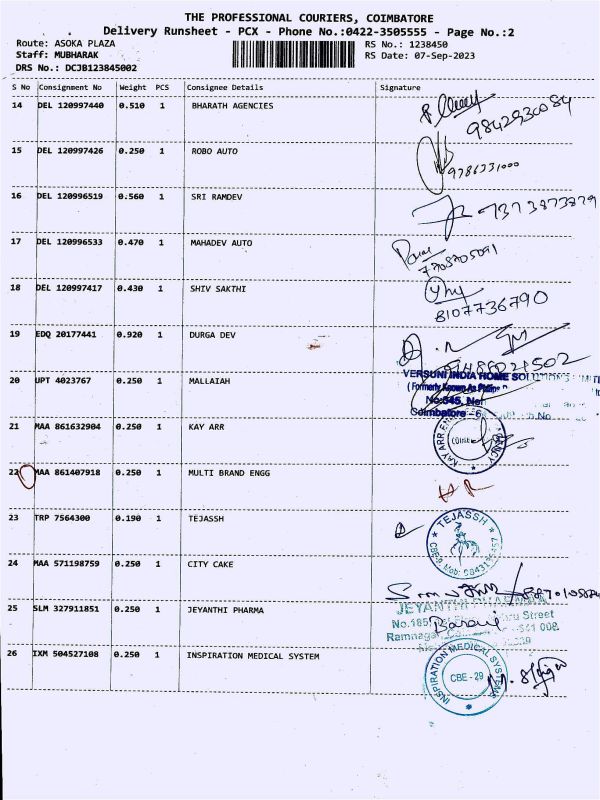 THE PROFESSIONAL COURIERS, COIMBATORE
Delivery Runsheet - PCX - Phone No.:0422-3505555 - Page No.:2
Route: ASOKA PLAZA
RS No.: 1238450
Staff: MUBHARAK
RS Date: 07-Sep-2023
DRS No.: DCJB123845002
S No Consignment No Weight PCS Consignee Details Signature
14 DEL 120997440 0.510 1 BHARATH AGENCIES
9842930084
15 DEL 120997426 0.250 1 ROBO AUTO
9786331000
16 DEL 120996519 0.560 1 SRI RAMDEV
7373873879
17 DEL 120996533 0.470 1 MAHADEV AUTO
18 DEL 120997417 0.430 1 SHIV SAKTHI
8107736790
19 EDQ 20177441 0.920 1 DURGA DEV
20 UPT 4023767 0.250 1 MALLAIAH
VERSUNI INDIA HOME
(Formerly Known As
Coimbatore - 6
21 MAA 861632904 0.250 1 KAY ARR
KAY ARR
22 MAA 861407918 0.250 1 MULTI BRAND ENGG
23 TRP 7564300 0.190 1 TEJASSH
TEJASSH
24 MAA 571198759 0.250 1 CITY CAKE
25 SLM 327911851 0.250 1 JEYANTHI PHARMA
JEYANTHI PHARMA
No.185
Street
Ramnagar
26 IXM 504527108 0.250 1 INSPIRATION MEDICAL SYSTEM
INSPIRATION MEDICAL SYSTEMS
CBE - 29